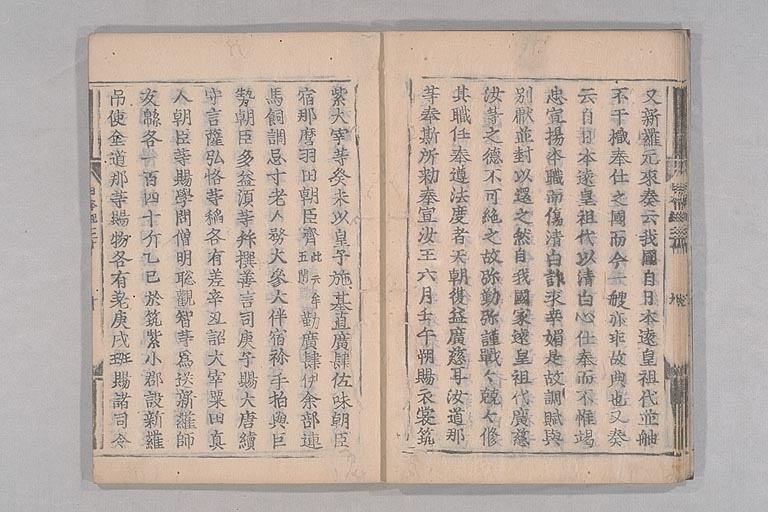 又新羅元來奏云我國自日本遠皇祖代並舳
不干檝奉仕之國而今一艘亦乖故典也又奏
云自日本遠皇祖代以清白心仕奉而不惟竭
忠宣揚本職而傷清白詐求幸媚是故調賦與
別獻並封以還之然自我國家遠皇祖代廣慈
汝等之德不可絶之故弥勤弥謹戰々兢々修
其職任奉遵法度者天朝復益廣慈耳汝道那
等奉斯所勅奉宣汝王六月壬午朔賜衣裳筑
紫大宰等癸未以皇子施基直廣肆佐味朝臣
宿那麿羽田朝臣齊此云牟五閇勤廣肆伊余部連
馬飼調忌寸老人務大參大伴宿祢手拍與巨
勢朝臣多益須等并撰善言司庚子賜大唐續
守言薩弘恪等稻各有差辛丑詔大宰粟田真
人朝臣等賜學問僧明聡觀智等爲送新羅師
友緜各一百四十斤乙巳於筑紫小郡設新羅
吊使金道那等賜物各有差庚戌班賜諸司令